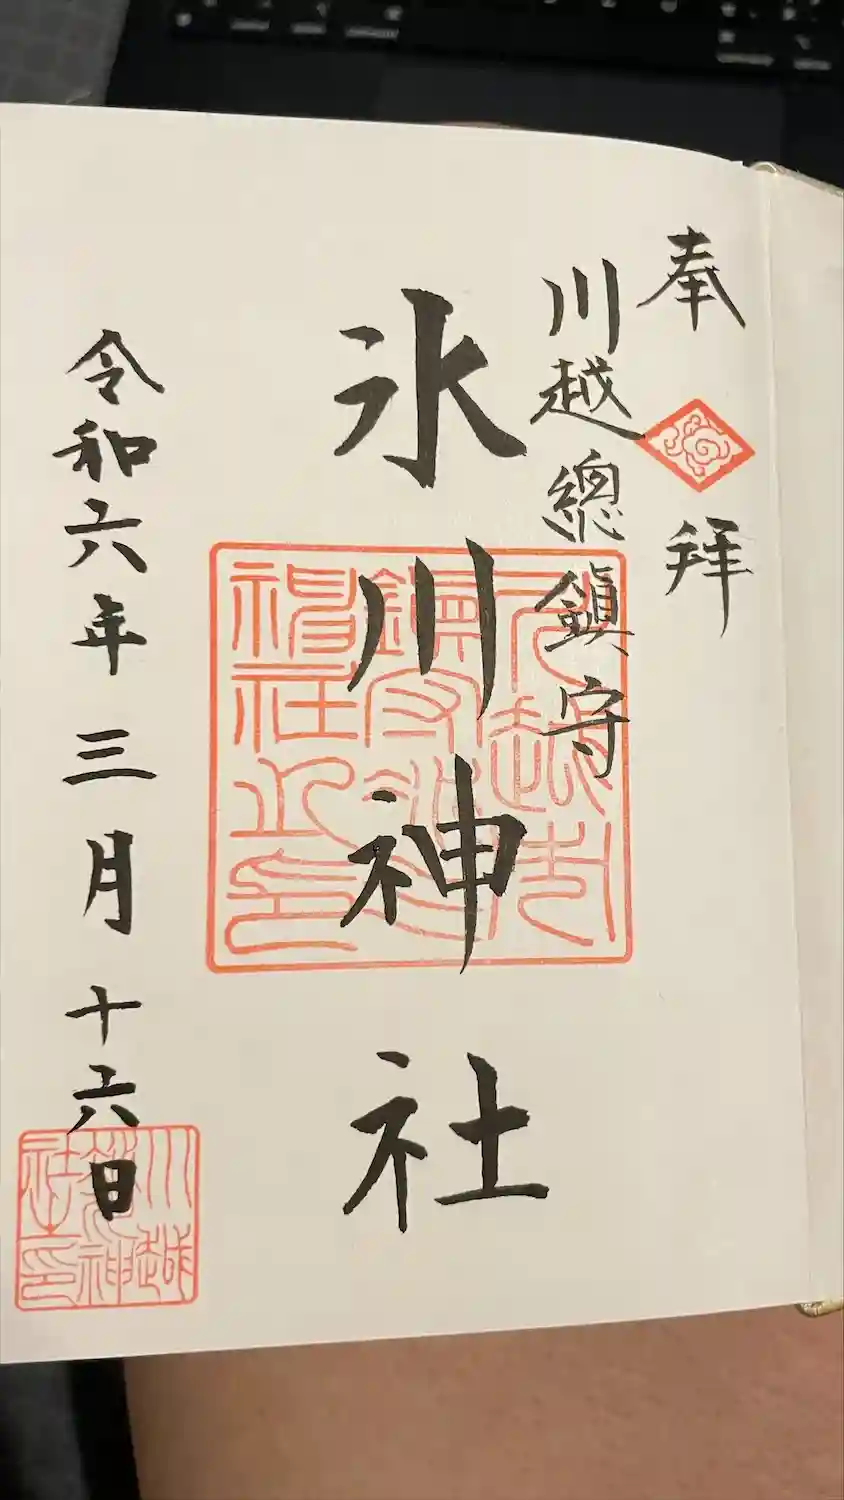 奉拜
川越總鎮守
氷川神社
令和六年三月十六日
川越
氷川神
社之印